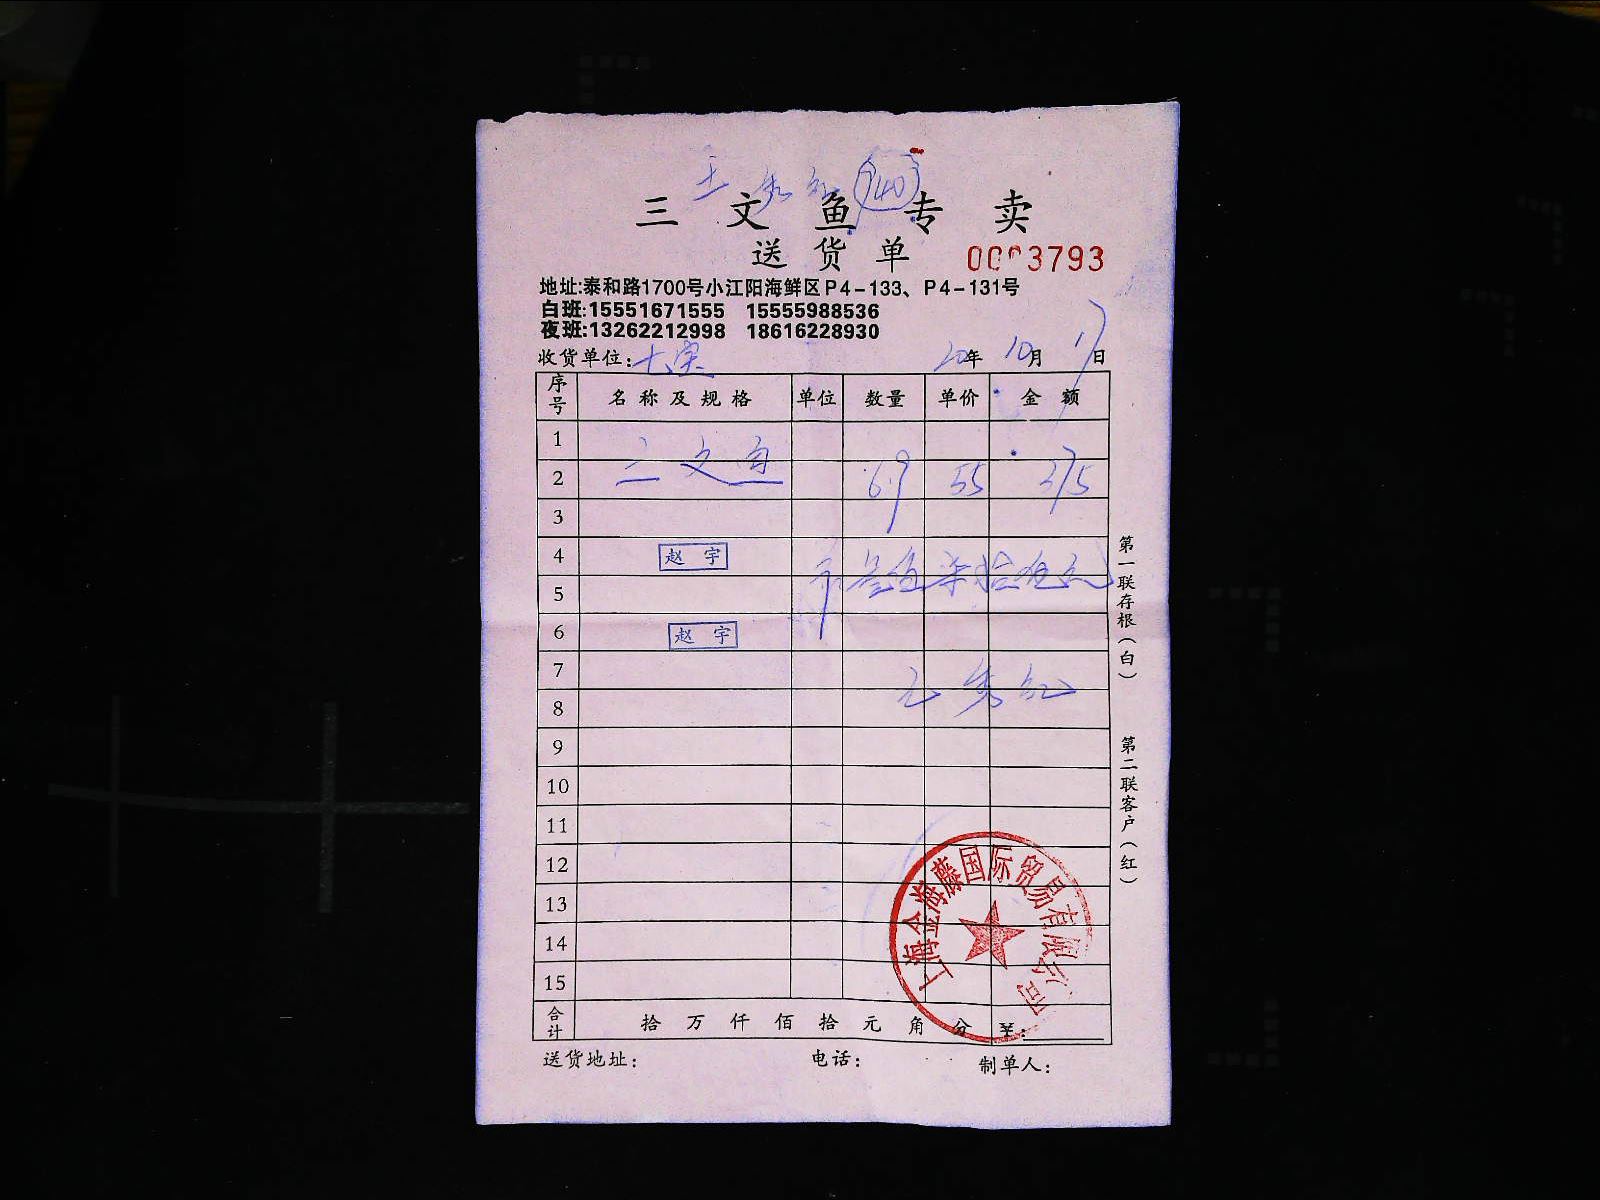 王秀红 140
三文鱼专卖
送货单 0003793
地址:泰和路1700号小江阳海鲜区P4-133、P4-131号
白班:15551671555 15555988536
夜班:13262212998 18616228930
收货单位: 20年 10月 17日
序号 名称及规格 单位 数量 单价 金额
1
2 三文鱼 6.9 55 375
3
4 赵宇
5
6 赵宇
7
8 王秀红
9
10
11
12
13
14
15
上海金海藤国际贸易有限公司
合计 拾万仟佰拾元角分 ¥:
送货地址: 电话: 制单人:
第一联存根(白)
第二联客户(红)